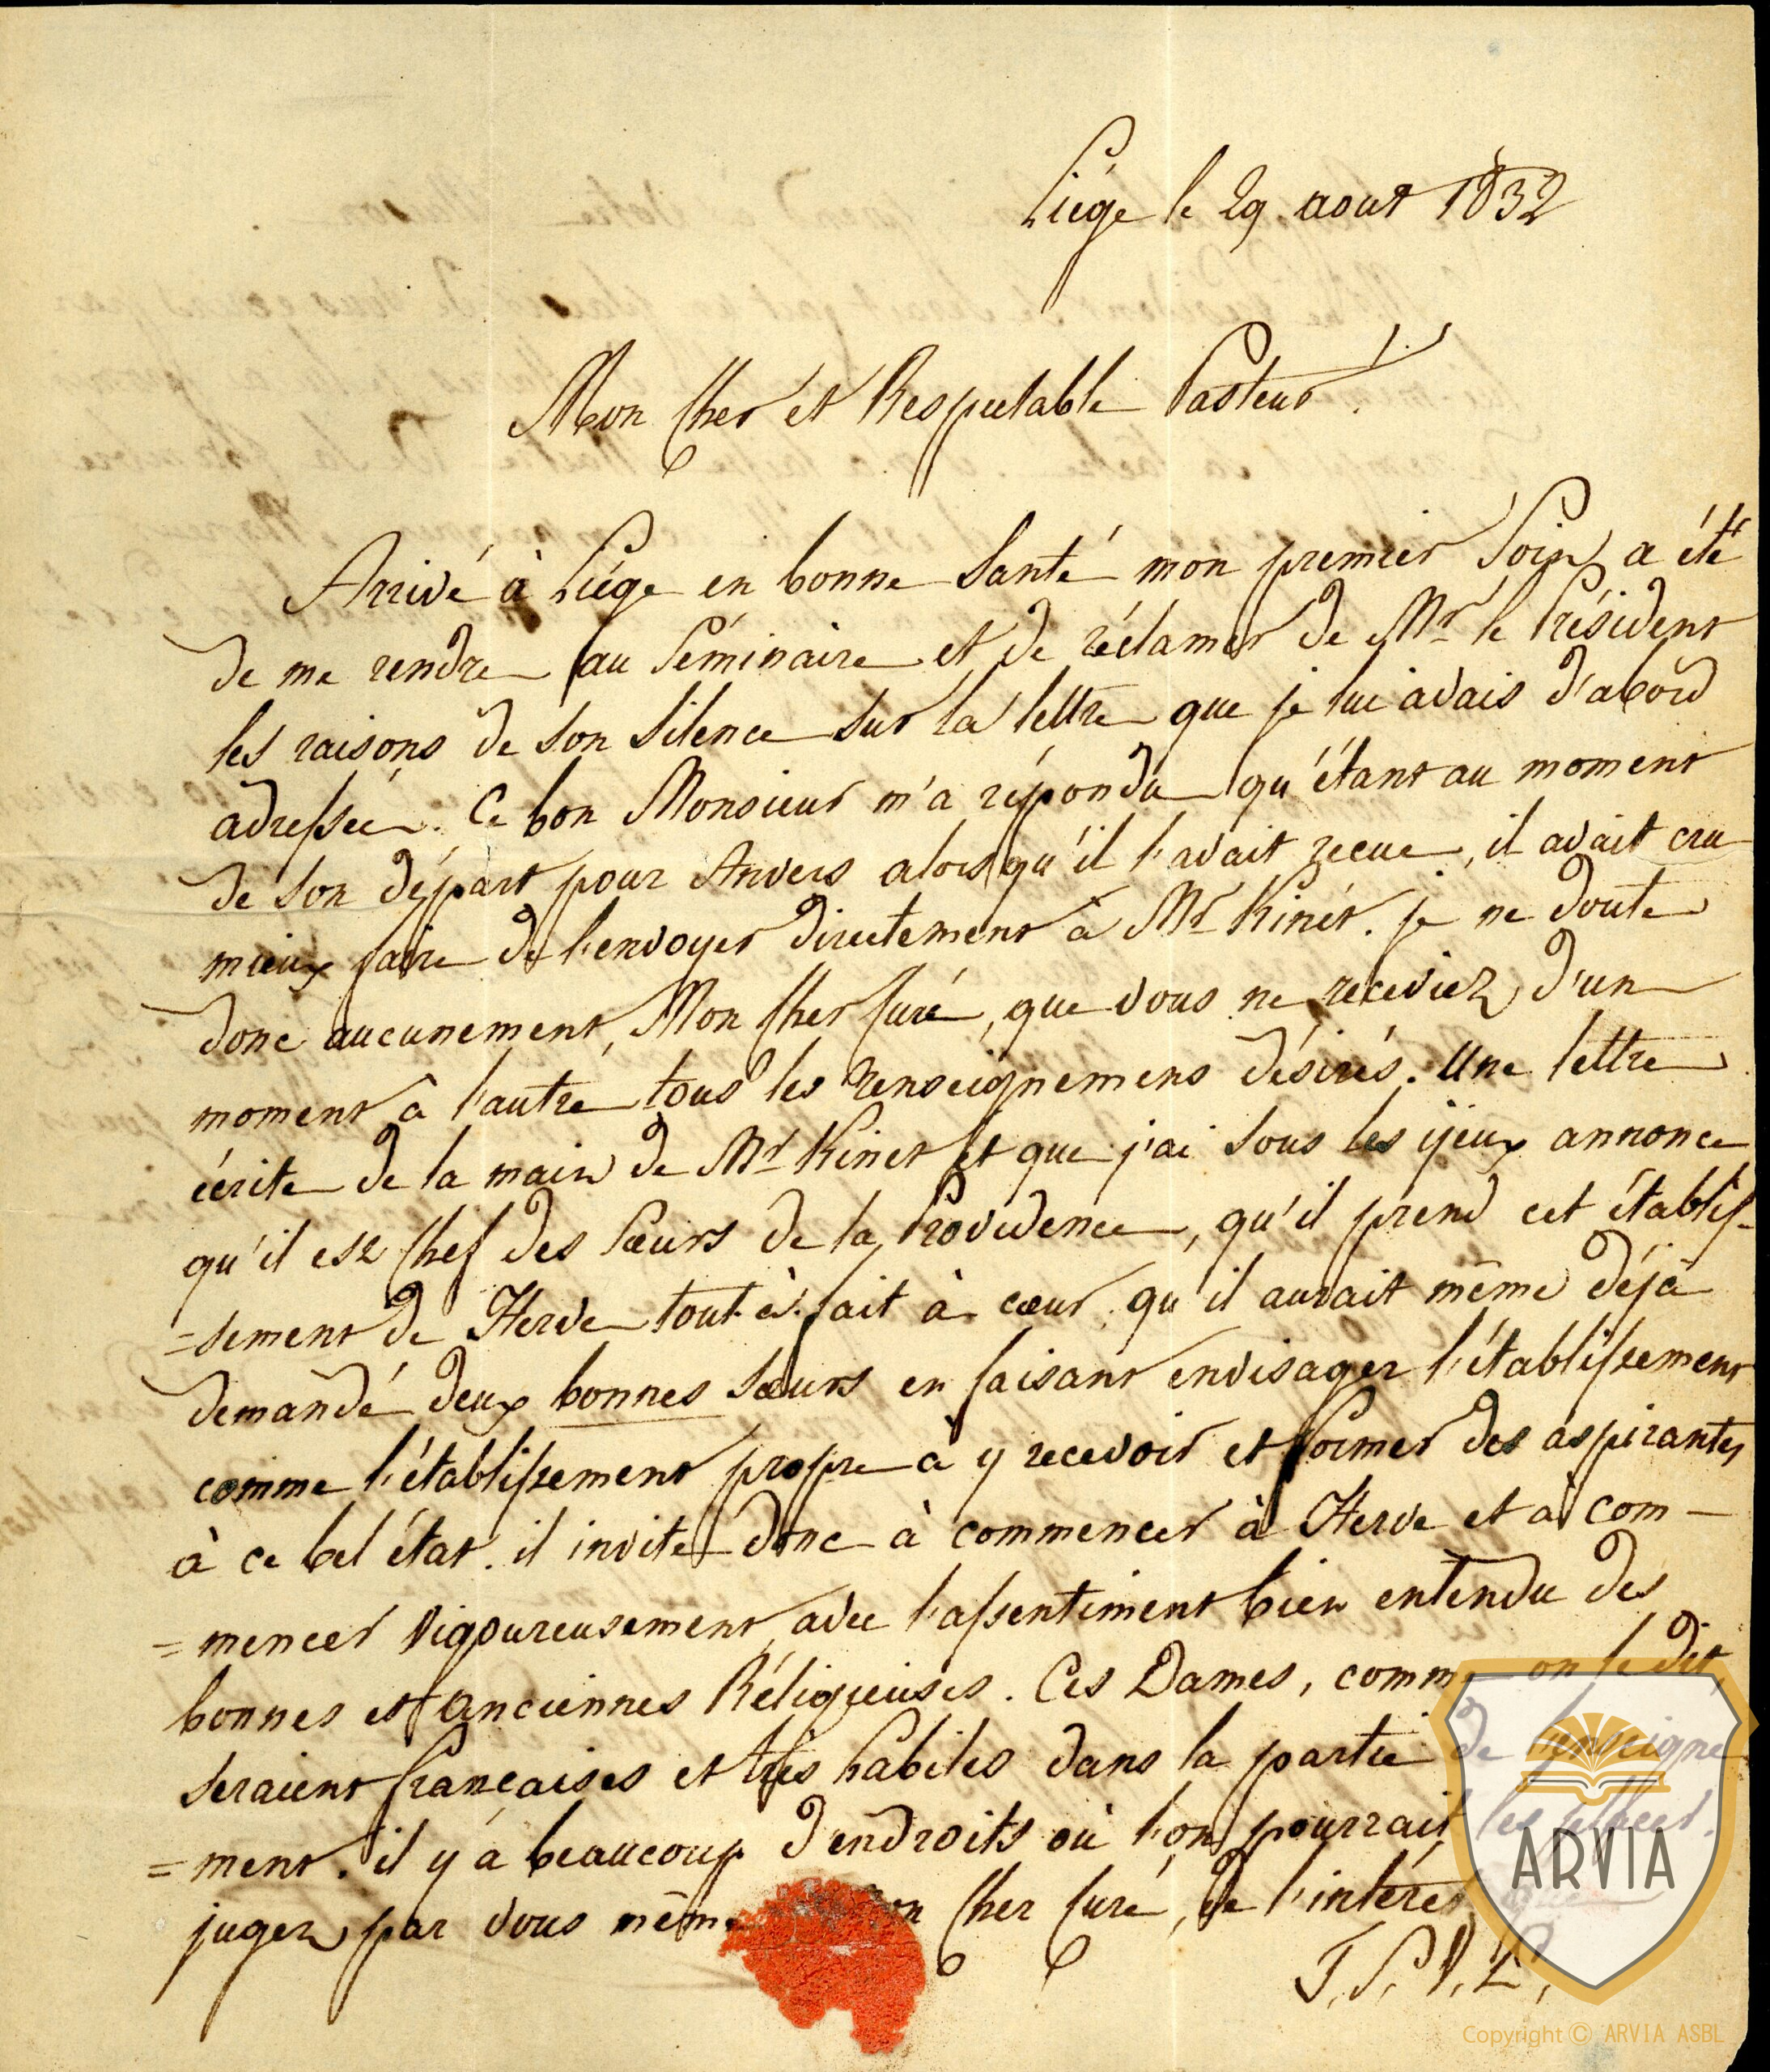 Liége le 29 aout 1832
Mon Cher et Respectable Pasteur !
Arrivé à Liége en bonne Santé mon premier Soin a été
de me rendre au Séminaire et de réclamer de Mr le Président
les raisons de son Silence sur la lettre que je lui avais d'abord
adressée. Ce bon Monsieur m'a répondu qu'étant au moment
de son départ pour Anvers alors qu'il l'avait recue, il avait cru
mieux faire de l'envoyer directement à Mr Kinet. je ne doute
donc aucunement, Mon Cher Curé, que vous ne receviez d'un
moment à l'autre tous les renseignemens désirés. Une lettre
écrite de la main de Mr Kinet et que j'ai sous les ÿeux annonce
qu'il est Chef des Sœurs de la Providence, qu'il prend cet établis-
=sement de Herve tout-à-fait à cœur, qu'il aurait même déjà
demandé deux bonnes Sœurs en faisant envisager l'établissement
comme l'établissement propre à y recevoir et former des aspirantes
à ce bel état. il invite donc à commencer à Herve et à com-
=mencer vigoureusement, avec l'assentiment bien entendu des
bonnes et anciennes Réligieuses. Ces Dames, comme on le dit,
seraient françaises et très habiles dans la partie de l'enseigne
=ment. il y a beaucoup d'endroits où l'on pourrait les placer.
jugez par vous même Mon Cher Curé, de l'intérêt
T. S. V. P.
ARVIA
Copyright © ARVIA ASBL